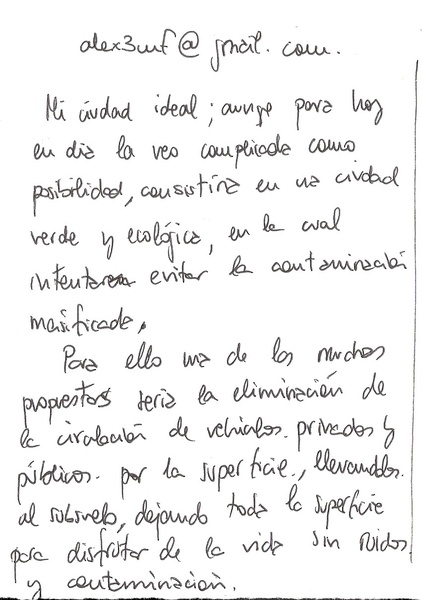 alex3mf@gmail.com.
Mi ciudad ideal; aunqe para hoy
en dia la veo complicada como
posibilidad, consistiría en una ciudad
verde y ecológica, en la cual
intentaran evitar la contaminación
masificada,
Para ello una de las muchas
propuestas seria la eliminación de
la circulación de vehículos. privados y
públicos. por la superficie., llevandolos.
al subsuelo, dejando toda la superficie
para disfrutar de la vida sin ruidos
y contaminacion.